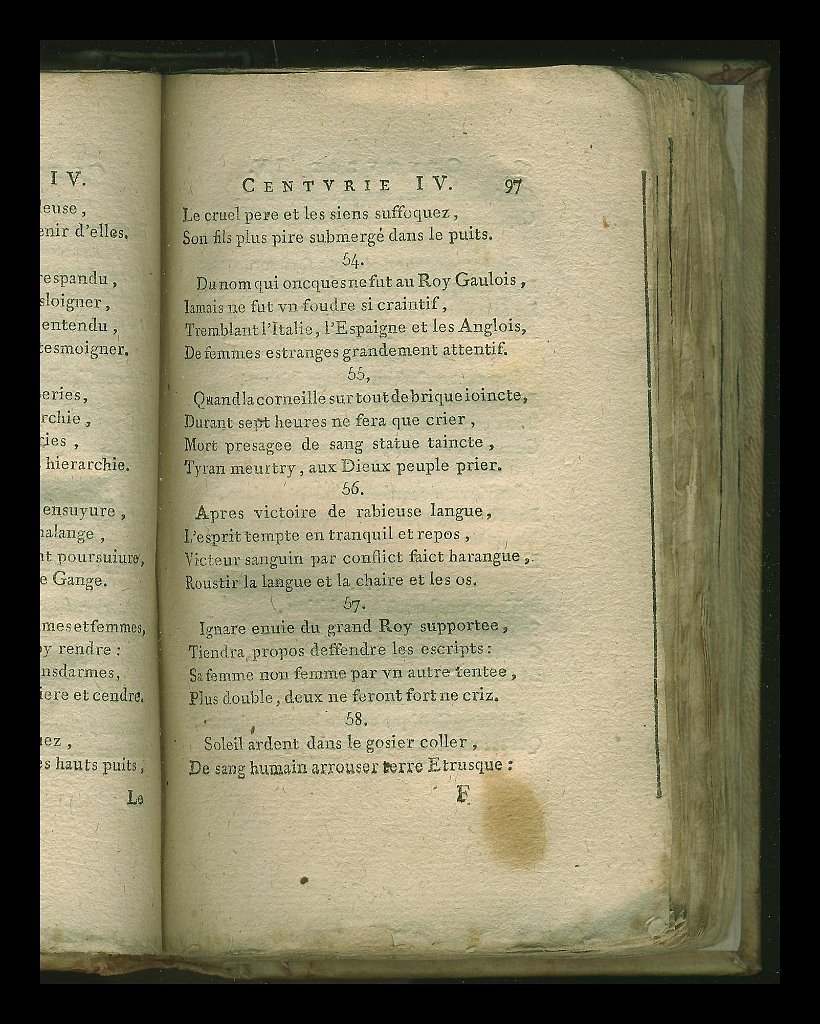 IV.
leuse,
enir d'elles.
respandu,
sloigner,
entendu,
tesmoigner.
eries,
rchie,
gies,
hierarchie.
ensuyure,
halange,
nt poursuiure,
e Gange.
mes et femmes,
oy rendre :
nsdarmes,
iere et cendre.
uez,
es hauts puits,
Le
CENTVRIE IV. 97
Le cruel pere et les siens suffoquez,
Son fils plus pire submergé dans le puits.
54.
Du nom qui oncques ne fut au Roy Gaulois,
Iamais ne fut vn foudre si craintif,
Tremblant l'Italie, l'Espaigne et les Anglois,
De femmes estranges grandement attentif.
55,
Quand la corneille sur tout de brique ioincte,
Durant sept heures ne fera que crier,
Mort presagee de sang statue taincte,
Tyran meurtry, aux Dieux peuple prier.
56.
Apres victoire de rabieuse langue,
L'esprit tempte en tranquil et repos,
Victeur sanguin par conflict faict harangue,
Roustir la langue et la chaire et les os.
57.
Ignare enuie du grand Roy supportee,
Tiendra propos deffendre les escripts :
Sa femme non femme par vn autre tentee,
Plus double, deux ne feront fort ne criz.
58.
Soleil ardent dans le gosier coller,
De sang humain arrouser terre Etrusque :
F